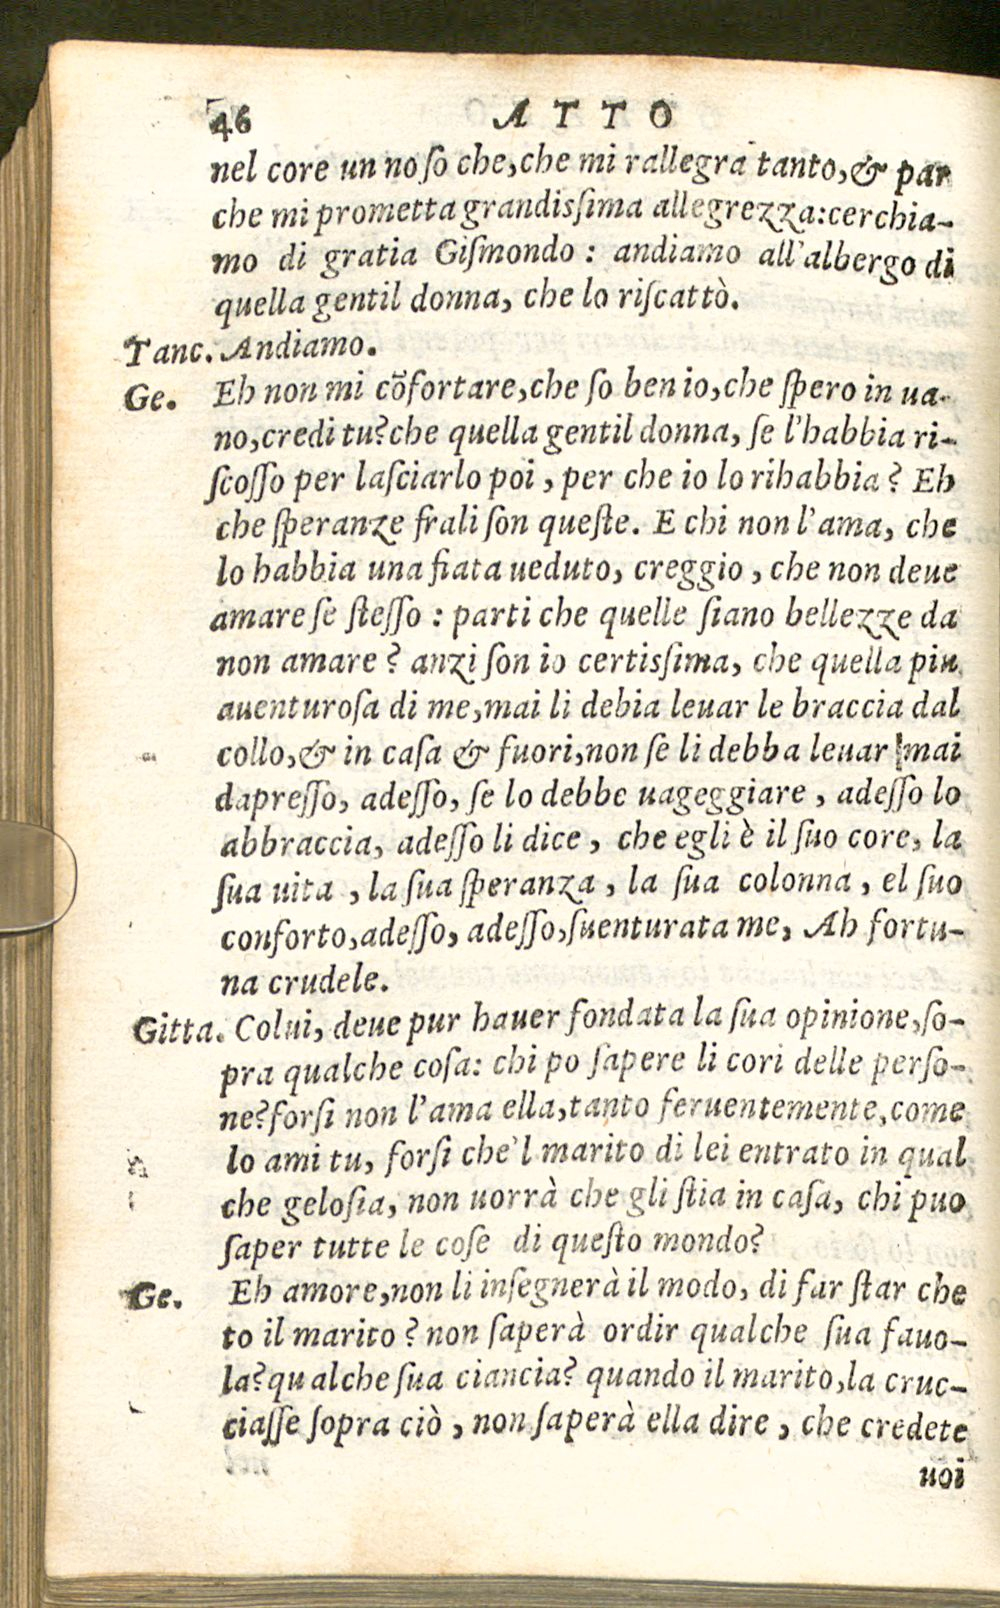 46 ATTO
nel core un no ſo che, che mi rallegra tanto, & par
che mi prometta grandiſsima allegrezza: cerchia-
mo di gratia Giſmondo : andiamo all'albergo di
quella gentil donna, che lo riſcattò.
Tanc. Andiamo.
Ge. Eh non mi cõfortare, che ſo ben io, che ſpero in ua-
no, credi tu? che quella gentil donna, ſe l'habbia ri-
ſcoſſo per laſciarlo poi, per che io lo rihabbia? Eh
che ſperanze frali ſon queſte. E chi non l'ama, che
lo habbia una fiata ueduto, creggio, che non deue
amare ſe ſteſſo : parti che quelle ſiano bellezze da
non amare? anzi ſon io certiſsima, che quella piu
auenturoſa di me, mai li debia leuar le braccia dal
collo, & in caſa & fuori, non ſe li debba leuar mai
dapreſſo, adeſſo, ſe lo debbe uageggiare, adeſſo lo
abbraccia, adeſſo li dice, che egli è il ſuo core, la
ſua uita, la ſua ſperanza, la ſua colonna, el ſuo
conforto, adeſſo, adeſſo, ſuenturata me, Ah fortu-
na crudele.
Gitta. Colui, deue pur hauer fondata la ſua opinione, ſo-
pra qualche coſa: chi po ſapere li cori delle perſo-
ne? forſi non l'ama ella, tanto feruentemente, come
lo ami tu, forſi che'l marito di lei entrato in qual
che geloſia, non uorrà che gli ſtia in caſa, chi puo
ſaper tutte le coſe di queſto mondo?
Ge. Eh amore, non li inſegnerà il modo, di far ſtar che
to il marito? non ſaperà ordir qualche ſua fauo-
la? qualche ſua ciancia? quando il marito, la cruc-
ciaſſe ſopra ciò, non ſaperà ella dire, che credete
uoi